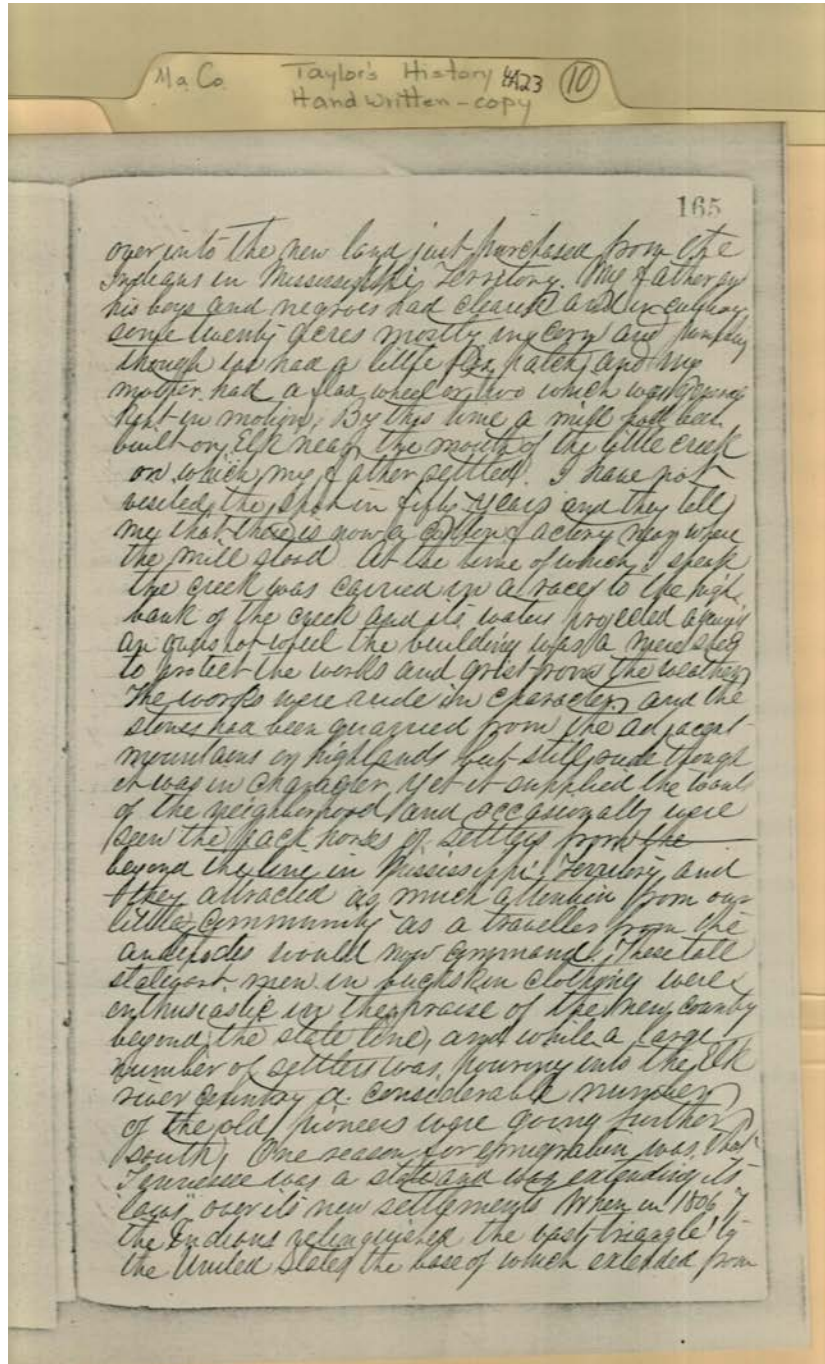 Ma Co. Taylor's History 4A23 10
Handwritten - copy
165
over into the new land just purchased from the
Indians in Mississippi Territory. My father and
his boys and negroes had cleared and in
some twenty acres mostly in corn and
though we had a little flax patch, and my
mother had a flax wheel or two which was
kept in motion. By this time a mill had been
built on Elk near the mouth of the little creek
on which my father settled. I have not
visited the spot in fifty years and they tell
me that there is now a cotton factory near where
the mill stood. At the time of which I speak
the creek was carried in a race to the high
bank of the creek and its waters projected against
an overshot wheel the building was a mere shed
to protect the works and grist from the weather
The works were rude in character and the
stones had been quarried from the adjacent
mountains or highlands but still rude though
it was in character, yet it supplied the wants
of the neighborhood and occasionally were
seen the pack horses of settlers from the
beyond the line in Mississippi Territory and
they attracted as much attention from our
little community as a traveller from the
antipodes would now command. These tall
stalwart men in buckskin clothing were
enthusiastic in the praise of the new country
beyond the state line, and while a large
number of settlers was pouring into the Elk
river country a considerable number
of the old pioneers were going further
south. One reason for emigration was that
Tennessee was a state and was extending its
laws over its new settlements When in 1806
the Indians relinquished the vast triangle to
the United States the base of which extended from